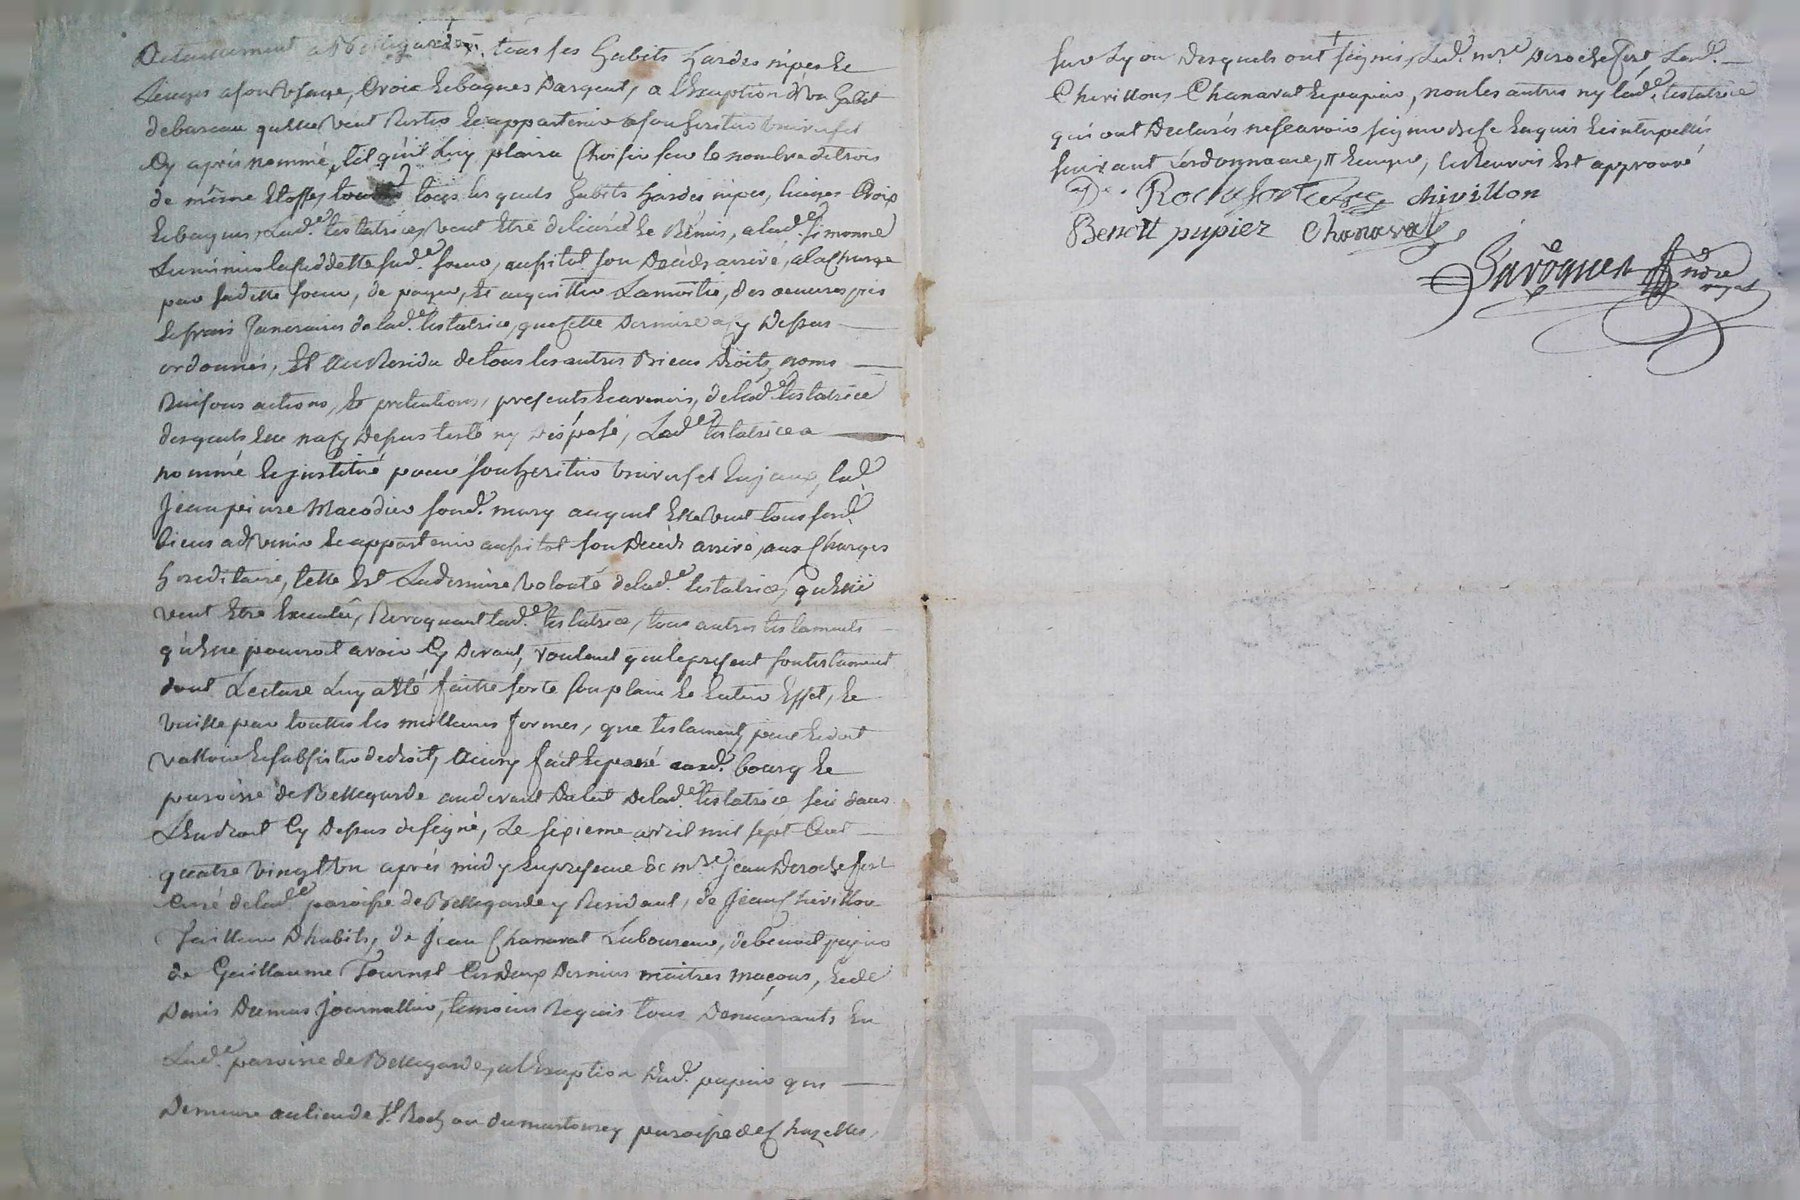 a Bellegarde, tous ses habits hardes nipes Et
Linges a son Usage, Croix Et bagues Dargent, a l'Exception d'Un habit
de bareau qu'elle veut Rester Et appartenir a son heritier Universel
Cy aprés nommé, tel qu'il Luy plaira Choisir sur le nombre de trois
de même Etoffe, tous les quels habits hardes nipes, linges Croix
Et bagues, Lad.e testatrice, veut Etre délivrés Et Remis, a lad.e Simonne
sad.e soeur, aussitot son Deceds arrivé, a la Charge
par saditte soeur, de payer, Et acquitter La moitié, des oeuvres pies
Et frais funeraires de lad.e testatrice, que cette Derniere a cy Dessus
ordonnés, Et Au Residu de tous les autres Biens Droits, noms
Raisons actions, Et pretentions, presents Et avenirs, de lad.e testatrice
desquels Elle na cy Dessus testé ny Disposé, Lad.e testatrice a
nommé Et institué pour son heritier Universel Led.
Jean pierre Macodier sond. mary auquel Elle veut tous sesd.
biens advenir Et appartenir aussitot son Deceds arrivé, aux Charges
hereditaires, telle Est La derniere Volonté de lad.e testatrice, qu'elle
veut Etre Executée, Revoquant lad.e testatrice, tous autres testaments
qu'Elle pourroit avoir Cy Devant, voulant que le present son testament
dont Lecture Luy a Eté faitte sorte son plain Et Entier Effet, Et
vaille par touttes les meilleures formes, que testament, peut Et doit
valloir Et subsister de droit, Ainsy fait Et passé aud. bourg Et
paroisse de Bellegarde de lad.e testatrice
L'Endroit Cy Dessus designé, Le sixieme avril mil sept Cent
quatre vingt Un aprés midy En presence de m.re Jean Derochefort
Curé de lad.e paroisse de Bellegarde y Residant, de Jean Chevillon
Tailleur Dhabits, de Jean Chanavat Laboureur, de benoit pupier
de Guillaume Tournel Ces deux Derniers maitres maçons, Et de
Denis Dumas Journallier, temoins Requis tous Demeurants En
Lad.e paroisse de Bellegarde, a l'Exception Dud. pupier qui
Demeure au lieu de St. Roch paroisse de Chazelles,
sur Lyon Desquels ont signés, Led. m.re Derochefort, Lesd.
Chevillon, Chanavat Et pupier, non les autres ny lad.e testatrice
qui ont Declarés ne scavoir signer de ce Enquis Et interpellés
suivant l'ordonnance, Le Renvois Est approuvé
Rochefort curé chivillon
Benoit pupier Chanavat
Javogues
al CHAREYRON